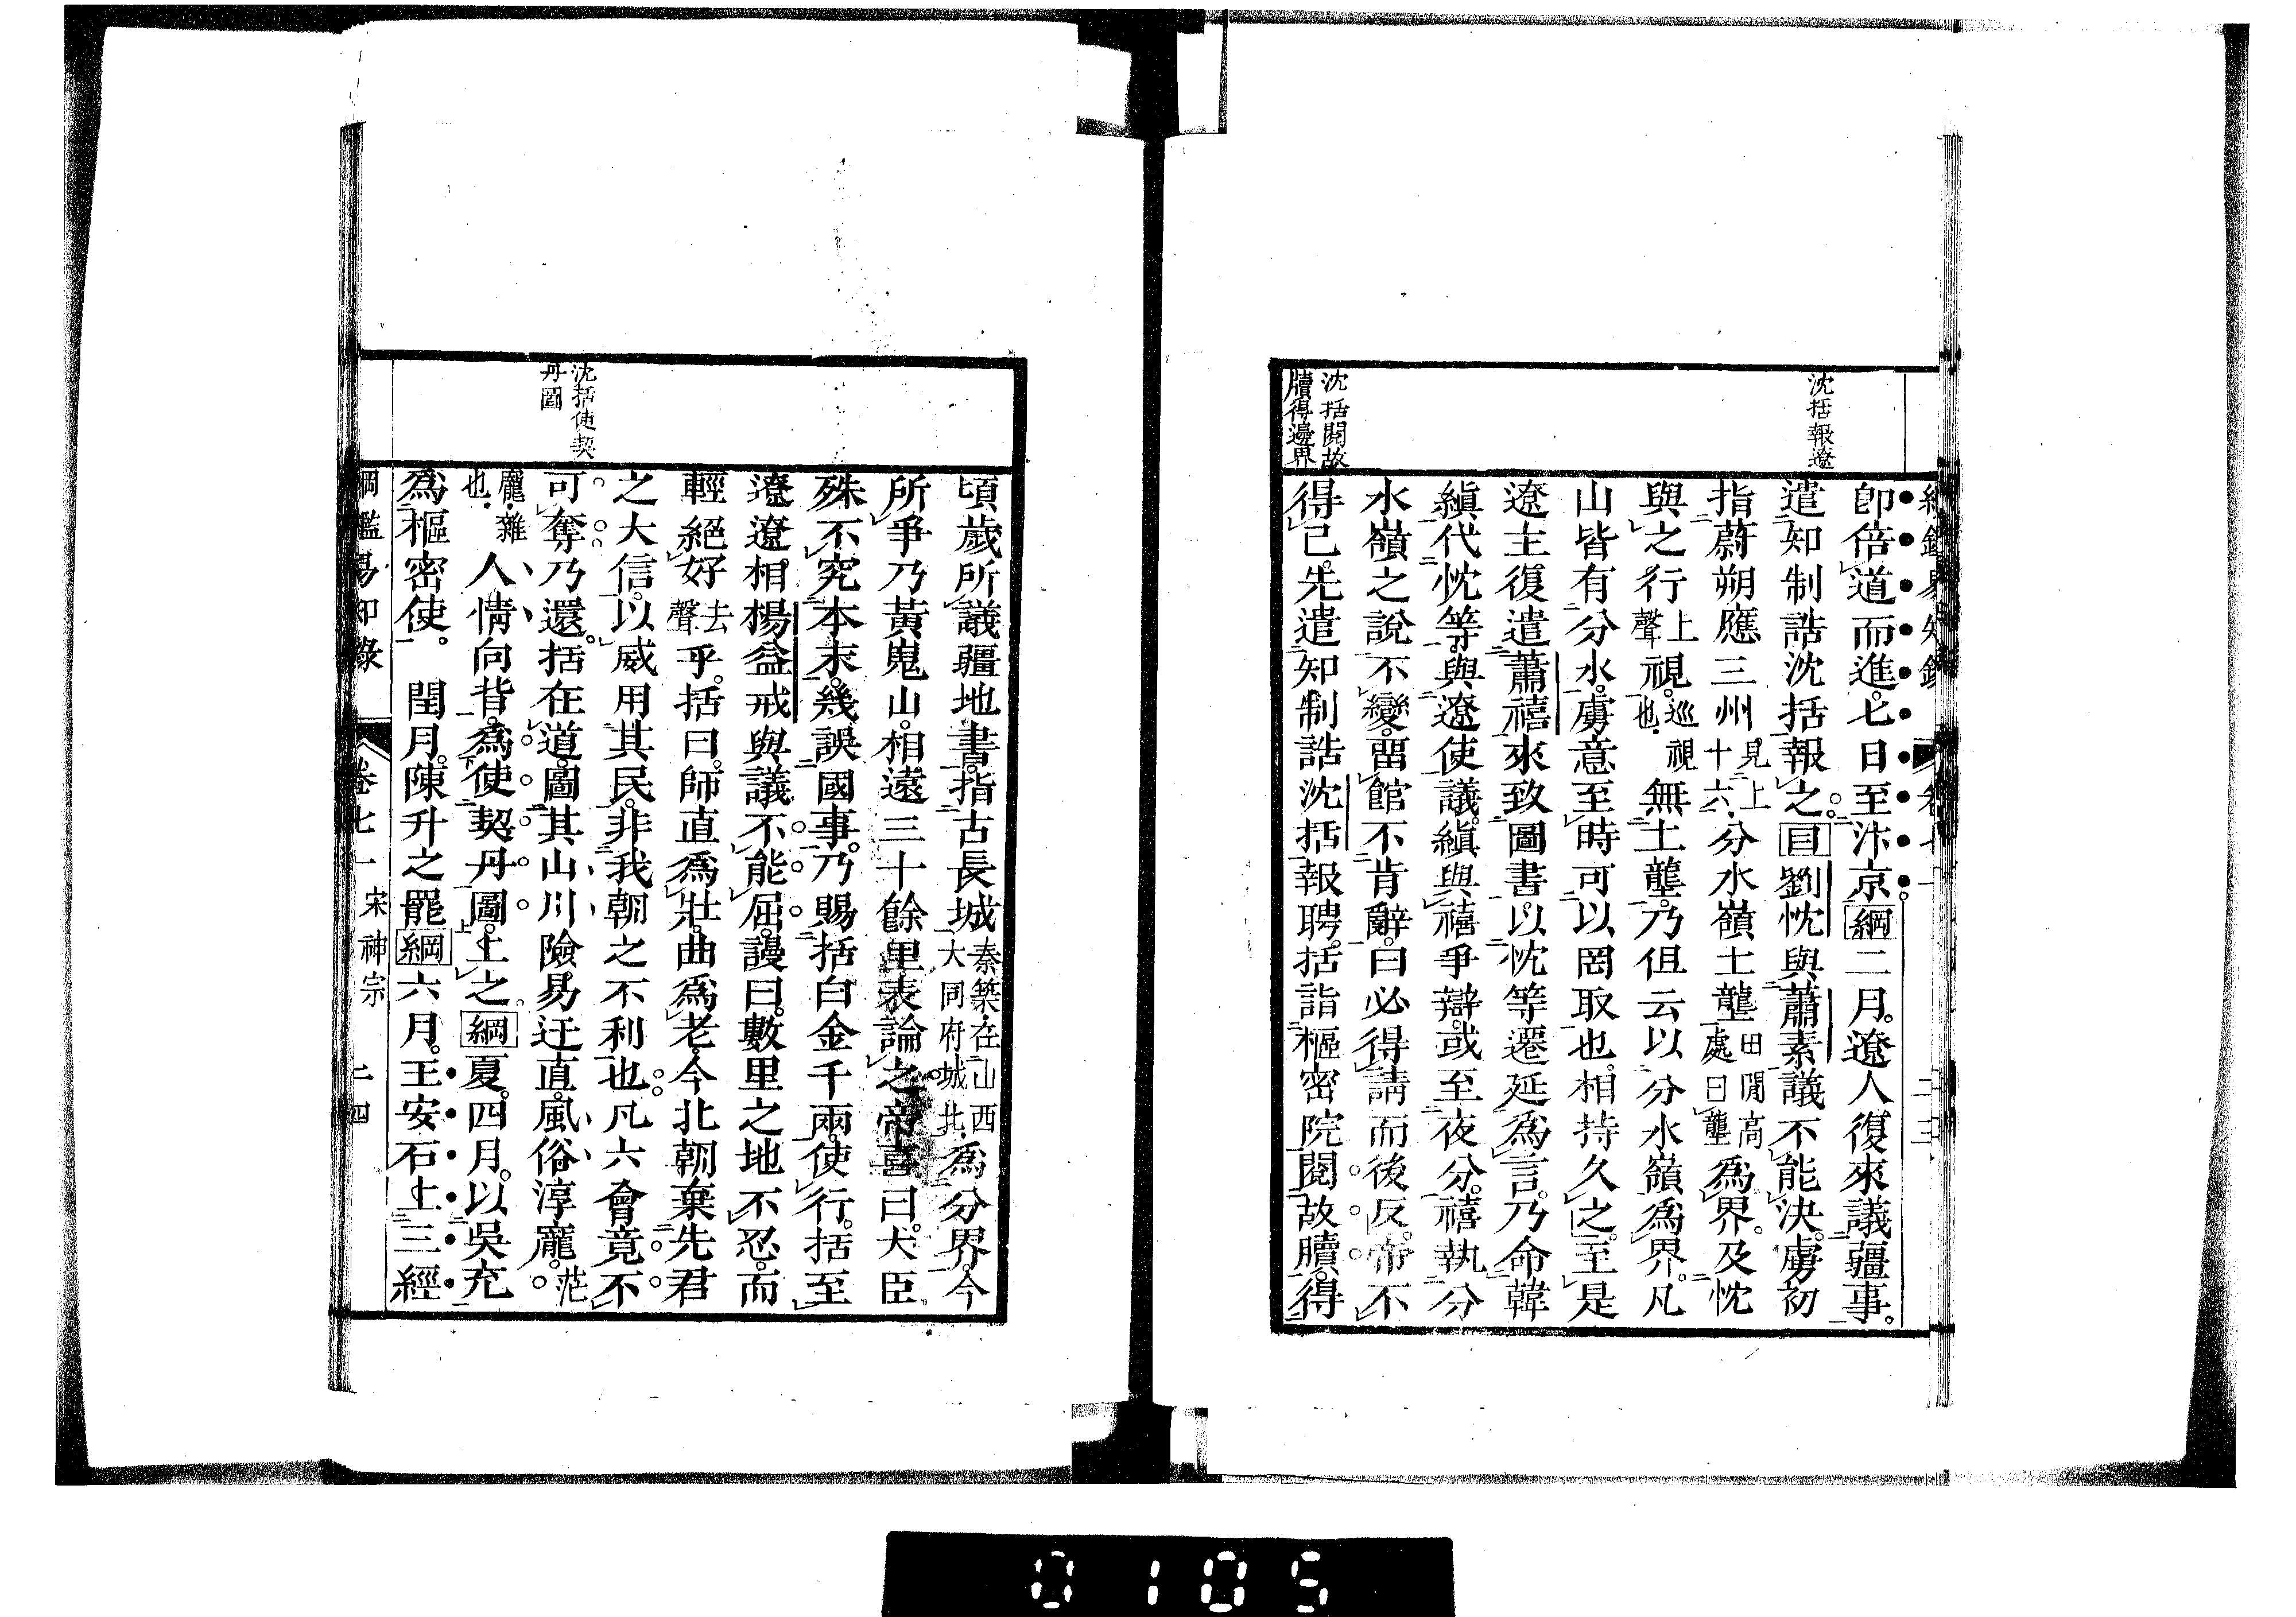 沈括報遼
沈括閱故
牘得邊界
卽倍道而進七日至汴京綱二月遼人復來議疆事
遣知制誥沈括報之目劉忱與蕭素議不能決虜初
指蔚朔應三州見上十六分水嶺土壟田閒高處曰壟爲界及忱
與之行上聲視巡視也無土壟乃但云以分水嶺爲界凡
山皆有分水虜意至時可以罔取也相持久之至是
遼主復遣蕭禧來致圖書以忱等遷延爲言乃命韓
縝代忱等與遼使議縝與禧爭辯或至夜分禧執分
水嶺之說不變畱館不肯辭曰必得請而後反帝不
得已先遣知制誥沈括報聘括詣樞密院閱故牘得
沈括使契
丹圖
頃歲所議疆地書指古長城秦築在山西大同府城北爲分界今
所爭乃黃嵬山相遠三十餘里表論之帝喜曰大臣
殊不究本末幾誤國事乃賜括白金千兩使行括至
遼遼相楊益戒與議不能屈謾曰數里之地不忍而
輕絕好去聲乎括曰師直爲壯曲爲老今北朝棄先君
之大信以威用其民非我朝之不利也凡六會竟不
可奪乃還括在道圖其山川險易迂直風俗淳龐茫
龐雜也人情向背爲使契丹圖上之綱夏四月以吳充
爲樞密使閏月陳升之罷綱六月王安石上三經
綱鑑易知錄 卷七一 宋神宗 二四
0105